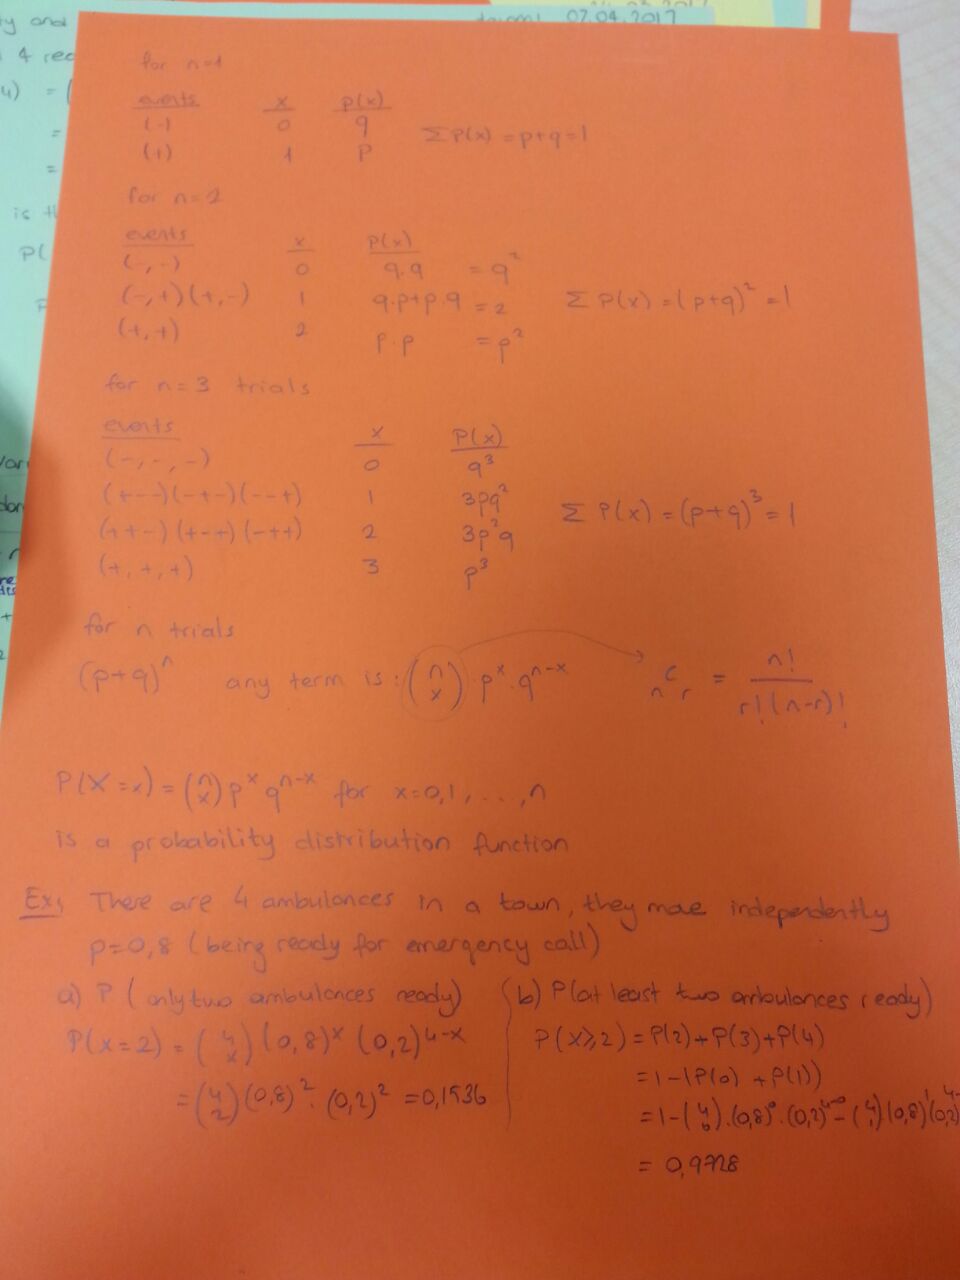 02.04.2017
ty and
4 rea
is th
P(
for n=1
events x P(x)
(-) 0 q
(+) 1 p
Σ P(x) = p+q = 1
for n=2
events x P(x)
(-,-) 0 q.q = q²
(-,+)(+,-) 1 q.p+p.q = 2
(+,+) 2 p.p = p²
Σ P(x) = (p+q)² = 1
for n=3 trials
events x P(x)
(-,-,-) 0 q³
(+--)(-+-)(--+) 1 3pq²
(++-)(+-+)(-++) 2 3p²q
(+,+,+) 3 p³
Σ P(x) = (p+q)³ = 1
for n trials
(p+q)ⁿ any term is : (n x) pˣ.qⁿ⁻ˣ nCr = n! / r!(n-r)!
P(X=x) = (n x) pˣ qⁿ⁻ˣ for x=0,1,...,n
is a probability distribution function
Ex, There are 4 ambulances in a town, they move independently
p=0,8 (being ready for emergency call)
a) P (only two ambulances ready)
P(x=2) = (4 x) (0,8)ˣ (0,2)⁴⁻ˣ
= (4 2) (0,8)² . (0,2)² = 0,1536
b) P(at least two ambulances ready)
P(x≥2) = P(2)+P(3)+P(4)
= 1-(P(0) + P(1))
= 1-(4 0).(0,8)⁰.(0,2)⁴⁻⁰ - (4 1).(0,8)¹(0,2)⁴⁻
= 0,9728